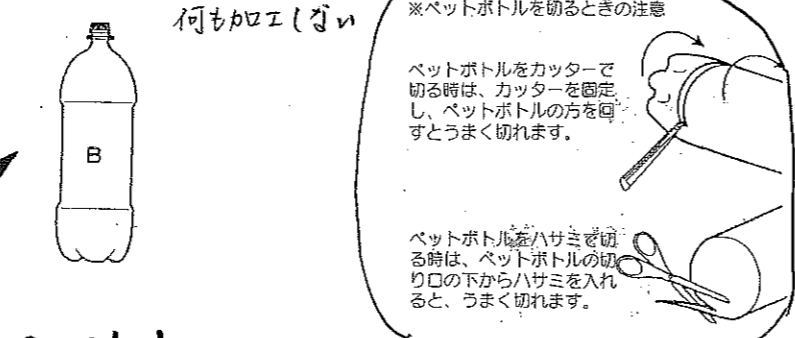 何も加工しない
B
※ペットボトルを切るときの注意
ペットボトルをカッターで
切る時は、カッターを固定
し、ペットボトルの方を回
すとうまく切れます。
ペットボトルをハサミで切
る時は、ペットボトルの切
り口の下からハサミを入れ
ると、うまく切れます。